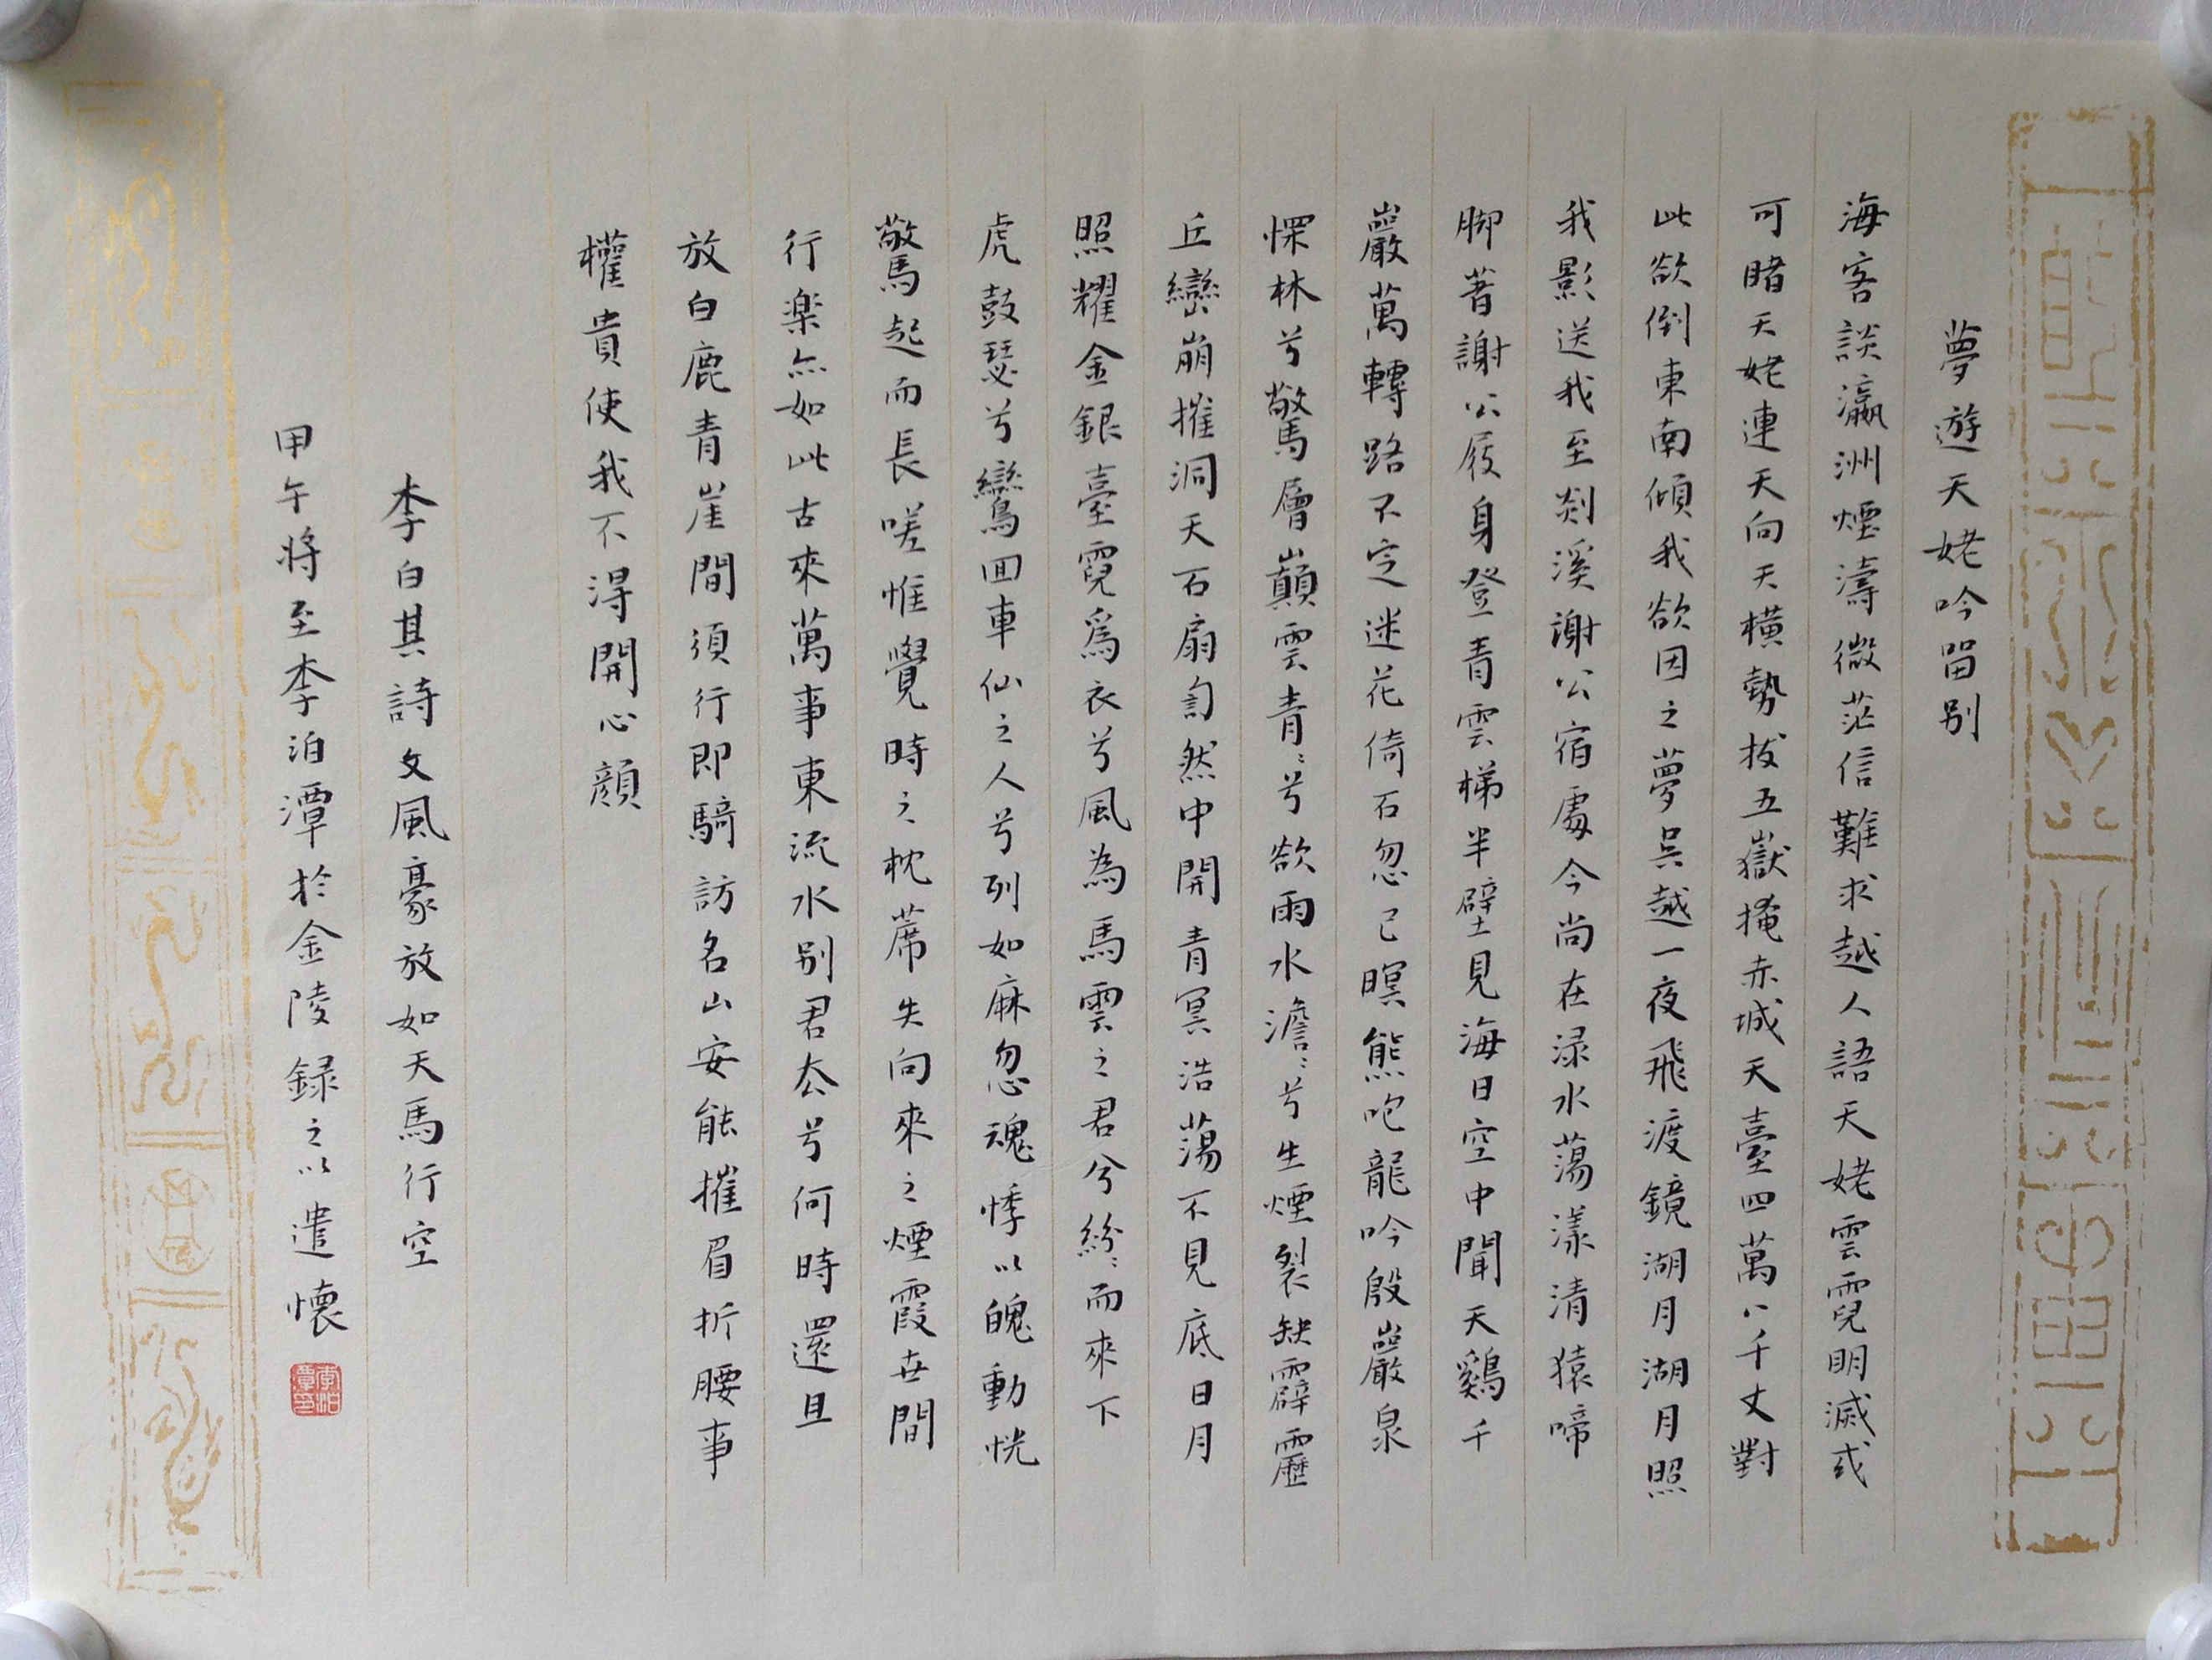 夢遊天姥吟畱别
海客談瀛洲煙濤微茫信難求越人語天姥雲霓明滅或
可睹天姥連天向天橫勢拔五嶽掩赤城天臺四萬八千丈對
此欲倒東南傾我欲因之夢吴越一夜飛渡鏡湖月湖月照
我影送我至剡溪謝公宿處今尚在渌水蕩漾清猿啼
脚著謝公屐身登青雲梯半壁見海日空中聞天鷄千
巖萬轉路不定迷花倚石忽已暝熊咆龍吟殷巖泉
慄林兮驚層巔雲青〻兮欲雨水澹〻兮生煙裂缺霹靂
丘巒崩摧洞天石扇訇然中開青冥浩蕩不見底日月
照耀金銀臺霓爲衣兮風為馬雲之君兮紛〻而來下
虎鼓瑟兮鸞囬車仙之人兮列如麻忽魂悸以魄動恍
驚起而長嗟惟覺時之枕蓆失向來之煙霞世間
行楽亦如此古來萬事東流水别君厺兮何時還且
放白鹿青崖間須行即騎訪名山安能摧眉折腰事
權貴使我不得開心顔
李白其詩文風豪放如天馬行空
甲午將至李泊潭於金陵録之以遣懷
李泊潭印